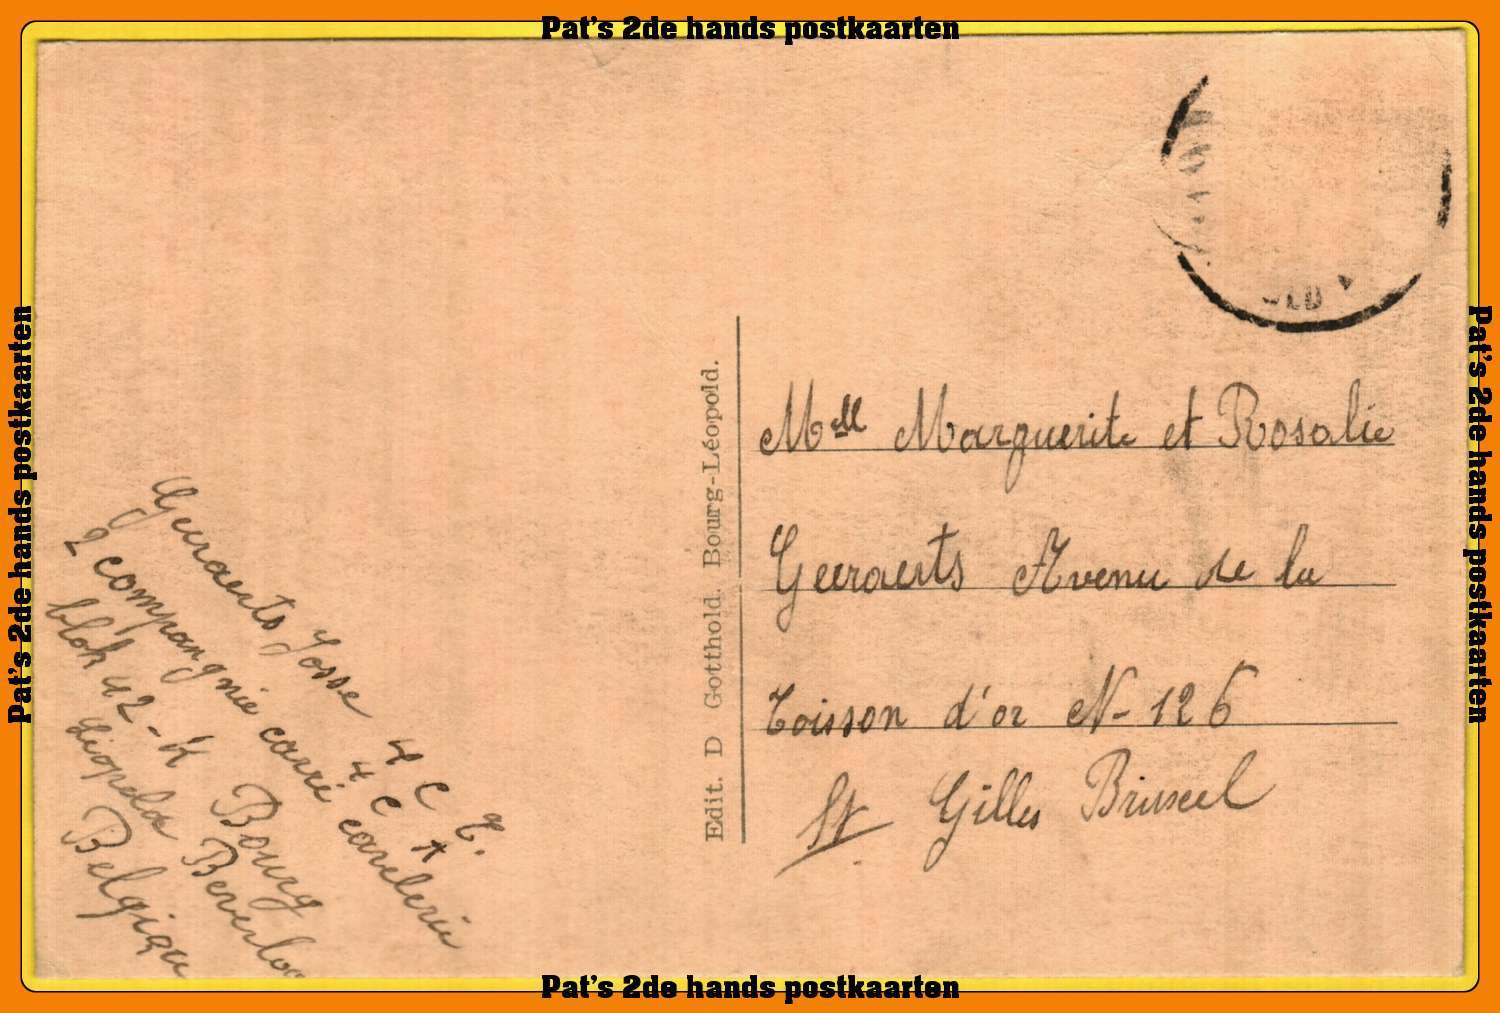 Pat's 2de hands postkaarten
Pat's 2de hands postkaarten
Pat's 2de hands postkaarten
Edit. D Gotthold. Bourg-Léopold.
Mell Marguerite et Rosalie
Geeraerts Avenu de la
Toison d'or N- 126
St Gilles Brussel
Geeraerts Josse
4 C T.
2 compangnie carrié cavelerie
4 C A
blok 42-K Bourg
Léopold Beverloo
Belgique
Pat's 2de hands postkaarten